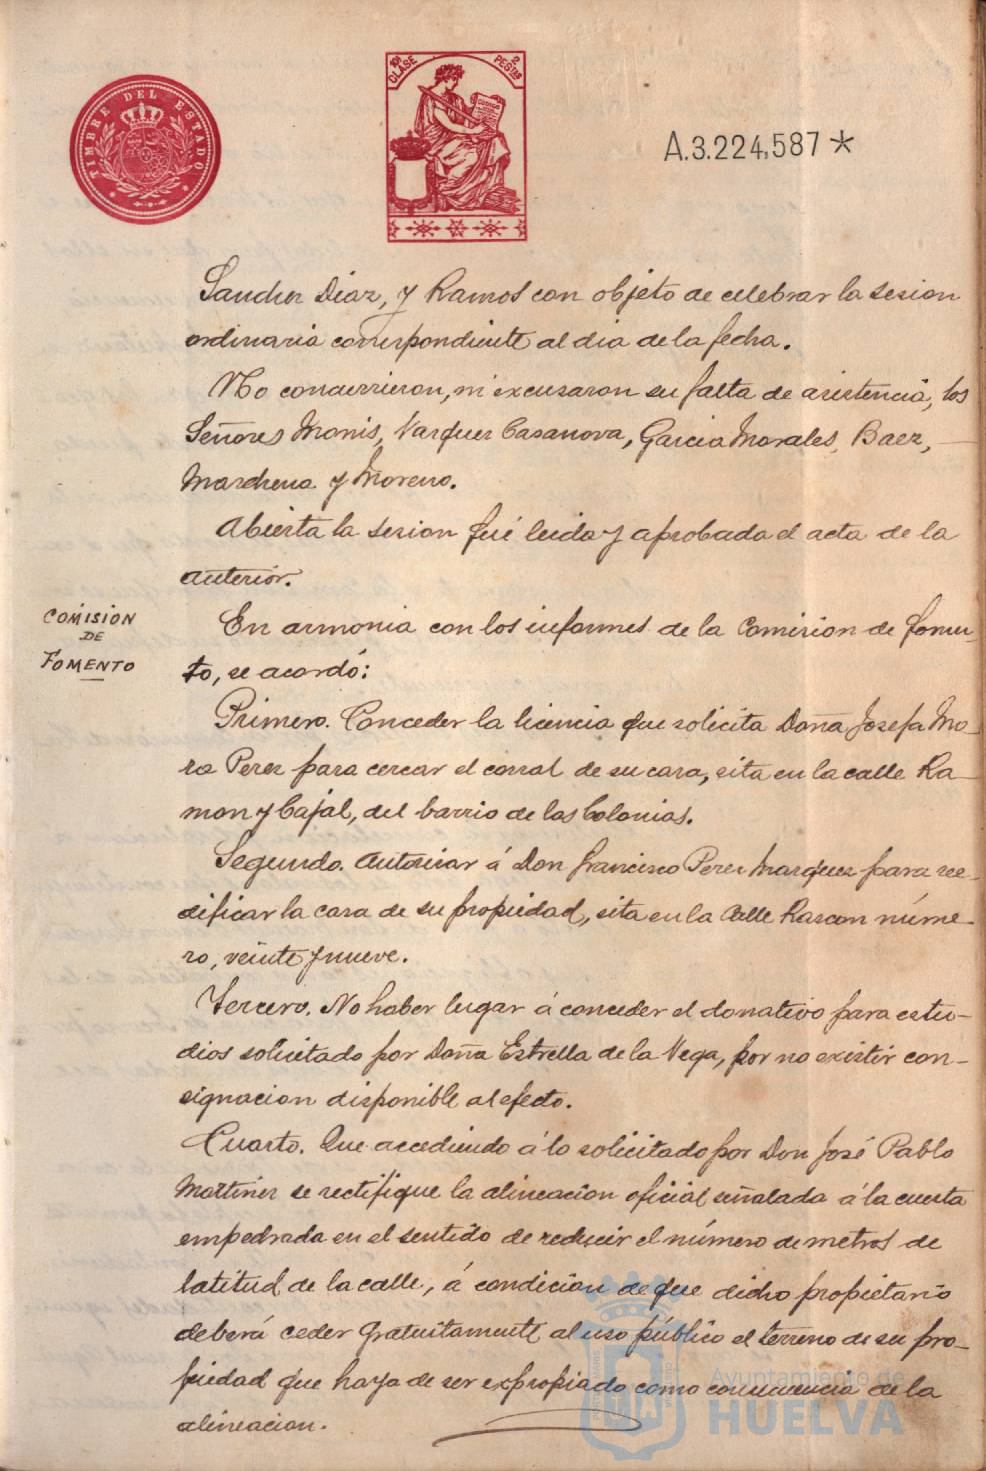 TIMBRE DEL ESTADO
10ª CLASE
2 PESTAS
A.3.224,587*
Sanchez Diaz, y Ramos con objeto de celebrar la sesion
ordinaria correspondiente al dia de la fecha.
No concurrieron, ni excusaron su falta de asistencia, los
Señores Monis, Vazquez Casanova, Garcia Morales, Baez,
Marchena y Moreno.
Abierta la sesion fué leida y aprobada el acta de la
anterior.
COMISION
DE
FOMENTO
En armonia con los informes de la Comision de Fomen-
to, se acordó:
Primero. Conceder la licencia que solicita Doña Josefa Mo-
ra Perez para cercar el corral de su casa, sita en la calle Ra-
mon y Cajal, del barrio de las Colonias.
Segundo. Autorizar á Don Francisco Perez Marquez para ree-
dificar la casa de su propiedad, sita en la Calle Rascon núme-
ro, veinte y nueve.
Tercero. No haber lugar á conceder el donativo para estu-
dios solicitado por Doña Estrella de la Vega, por no existir con-
signacion disponible al efecto.
Cuarto. Que accediendo á lo solicitado por Don José Pablo
Martinez se rectifique la alineacion oficial señalada á la cuesta
empedrada en el sentido de reducir el número de metros de
latitud de la calle, á condicion de que dicho propietario
deberá ceder gratuitamente al uso público el terreno de su pro-
piedad que haya de ser expropiado como consecuencia de la
alineacion.
Ayuntamiento de
HUELVA